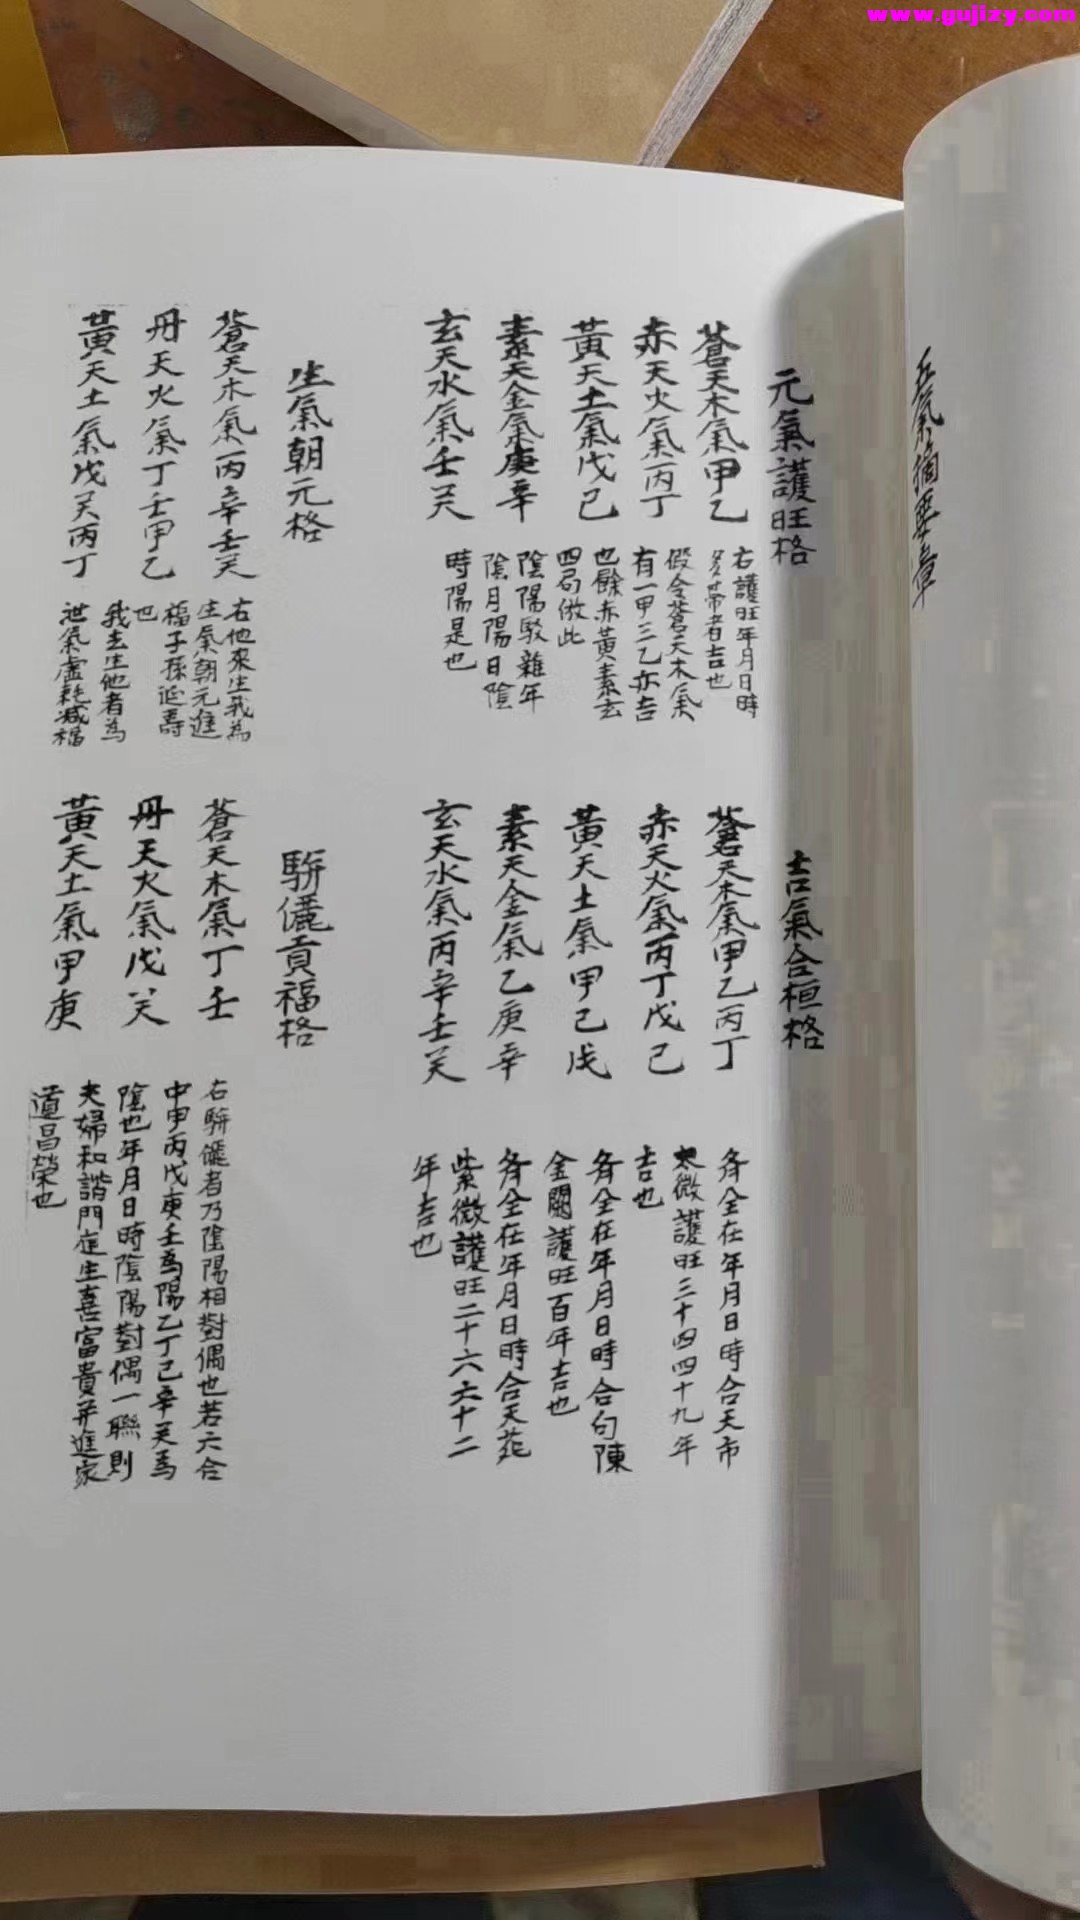 www.gujizy.com
五氣摘要章
元氣護旺格
蒼天木氣甲乙
赤天火氣丙丁
黃天土氣戊己
素天金氣庚辛
玄天水氣壬癸
右護旺年月日時
多帶者吉也
假令蒼天木氣
有一甲三乙亦吉
也餘赤黃素玄
四局倣此
陰陽駁雜年
陰月陽日陰
時陽是也
吉氣合桓格
蒼天木氣甲乙丙丁
赤天火氣丙丁戊己
黃天土氣甲己戊
素天金氣乙庚辛
玄天水氣丙辛壬癸
各全在年月日時合天市
太微護旺三十四四十九年
吉也
各全在年月日時合句陳
金闕護旺百年吉也
各全在年月日時合天苑
紫微護旺二十六六十二
年吉也
生氣朝元格
蒼天木氣丙辛壬癸
丹天火氣丁壬甲乙
黃天土氣戊癸丙丁
右他來生我為
生氣朝元進
福子孫延壽
也
我去生他者為
泄氣虛耗減福
駢儷貢福格
蒼天木氣丁壬
丹天火氣戊癸
黃天土氣甲庚
右駢儷者乃陰陽相對偶也若六合
中甲丙戊庚壬為陽乙丁己辛癸為
陰也年月日時陰陽對偶一聯則
夫婦和諧門庭生喜富貴并進家
道昌榮也